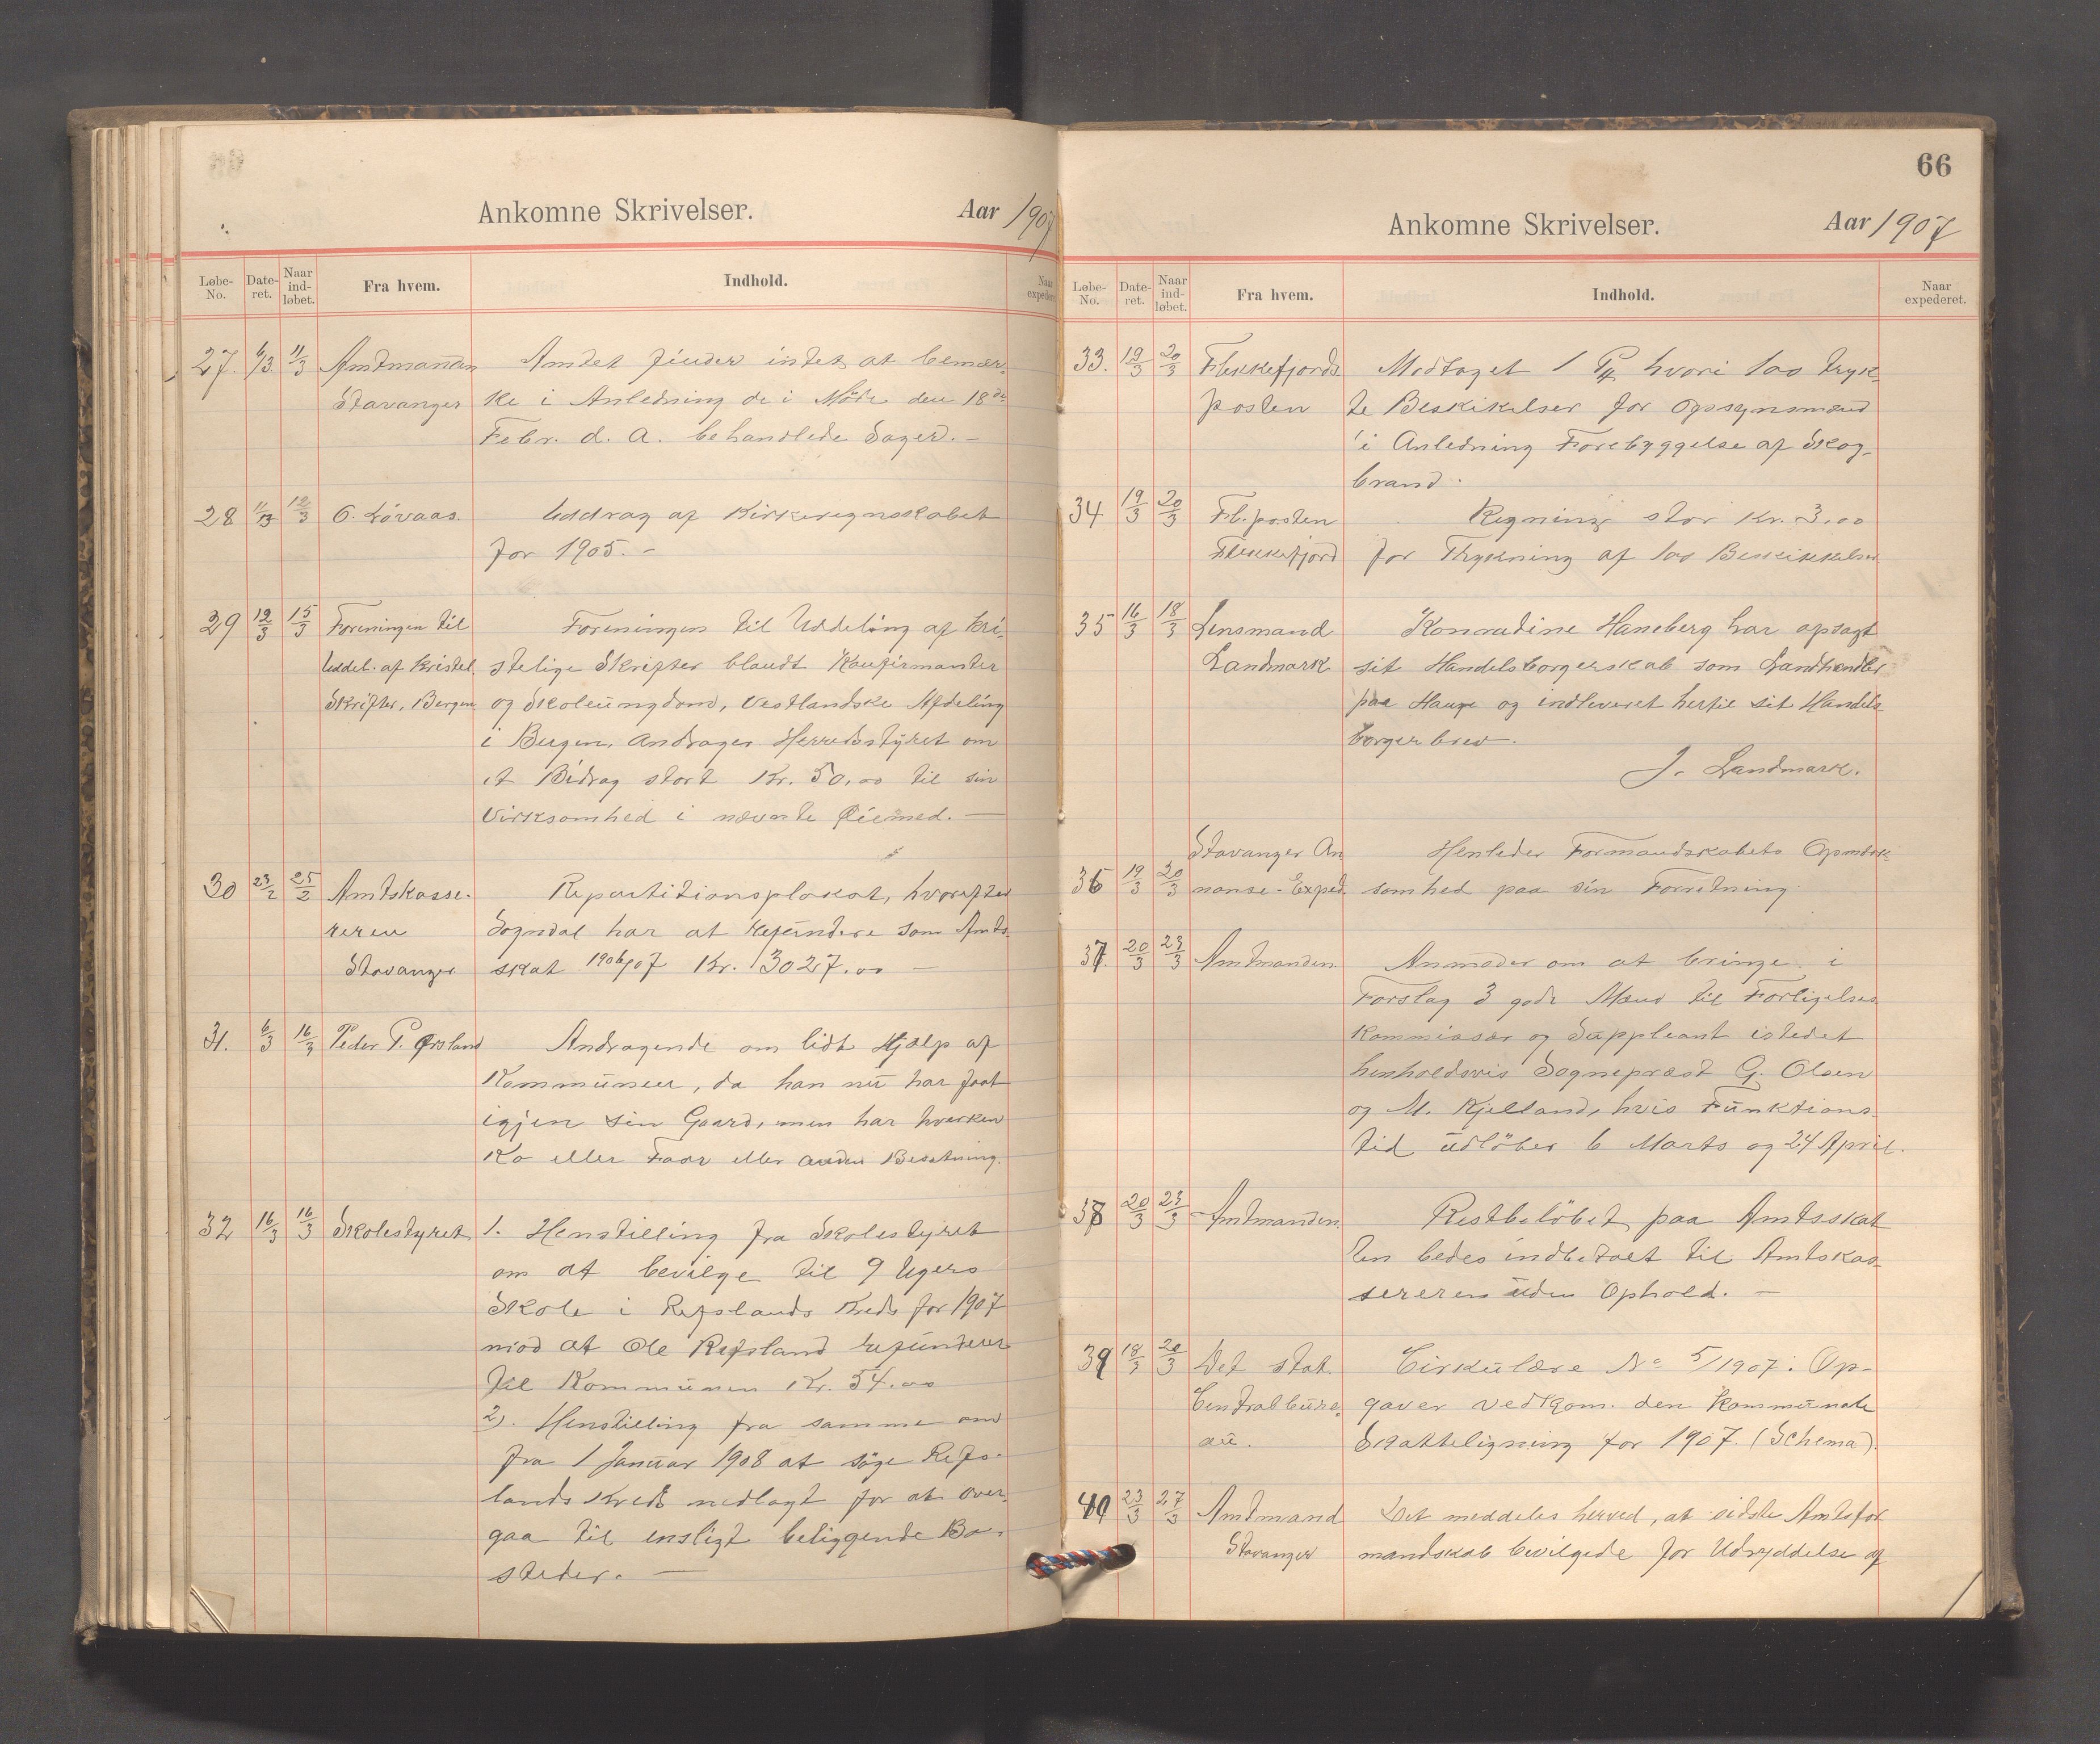 Ankomne Skrivelser.
Aar 1907
Løbe-No.
Date-ret.
Naar ind-løbet.
Fra hvem.
Indhold.
Naar
27. 6/3. 11/3 Amtmanden Amtet finder intet at bemær-
Stavanger ke i Anledning de i Møde den 18de
Febr. d. A. behandlede Sager. –
28 11/3 12/3 O. Løvaas. Uddrag af Kirkeregnskabet
for 1905. –
29 12/3 15/3 Foreningen til Foreningen til Uddeling af kri-
Uddel. af Kristel. stelige Skrifter blandt Konfirmanter
Skrifter, Bergen og Skoleungdom, Vestlandske Afdeling
i Bergen, andrager Herredsstyret om
et Bidrag stort Kr. 50,00 til sin
Virksomhed i nævnte Øiemed. –
30 23/2 25/2 Amtskasse- Repartitionsplakat, hvorefter
reren Sogndal har at refundere som Amts-
Stavanger skat 1906/07 Kr. 3027.00 –
31. 6/3 16/3 Peder P. Ørsland Andragende om lidt Hjælp af
Kommunen, da han nu har faat
igjen sin Gaard, men har hverken
Ko eller Faar eller anden Besætning.
32 16/3 16/3 Skolestyret 1. Henstilling fra Skolestyret
om at bevilge til 9 Ugers
Skole i Refslands Kreds for 1907
mod at Ole Refsland refunderer
til Kommunen Kr. 54.00
2). Henstilling fra samme om
fra 1 Januar 1908 at søge Refs-
lands Kreds nedlagt for at over-
gaa til ensligt beliggende Bo-
steder. –
66
Ankomne Skrivelser.
Aar 1907
Løbe-No.
Date-ret.
Naar ind-løbet.
Fra hvem.
Indhold.
Naar expederet.
33. 19/3 20/3 Flekkefjords- Modtaget 1 Pk hvori 100 tryk-
posten te Beskikelser for Opsynsmænd
i Anledning Forebyggelse af Skog-
brand.
34 19/3 20/3 Fl.posten Regning stor Kr. 3.00
Flekkefjord for Trykning af 100 Beskikkelser.
35 16/3 18/3 Lensmand Konradine Haneberg har opsagt
Landmark sit Handelsborgerskab som Landhandler
paa Hauge og indleveret hertil sit Handels-
borgerbrev.
J. Landmark.
Stavanger An Henleder Formandskabets Opmærk-
36 19/3 20/3 nonse-Exped. somhed paa sin Forretning.
37. 20/3 23/3 Amtmanden. Anmoder om at bringe i
Forslag 3 gode Mænd til Forligelses
Kommissær og Suppleant istedet
henholdsvis Sogneprest G. Olsen
og M. Kjelland, hvis Funktions-
tid udløber 6 Marts og 24 April.
38 20/3 23/3 Amtmanden. Restbeløbet paa Amtsskat
en bedes indbetalt til Amtskas-
sereren uden Ophold. –
39 18/3 20/3 Det stat. Cirkulære No 5/1907: Op-
Centralbure- gaver vedkom. den kommunale
au. Skatteligning for 1907. (Schema).
40 23/3 27/3 Amtmand Det meddeles herved, at sidste Amtsfor
Stavanger mandskab bevilgede for Udryddelse af